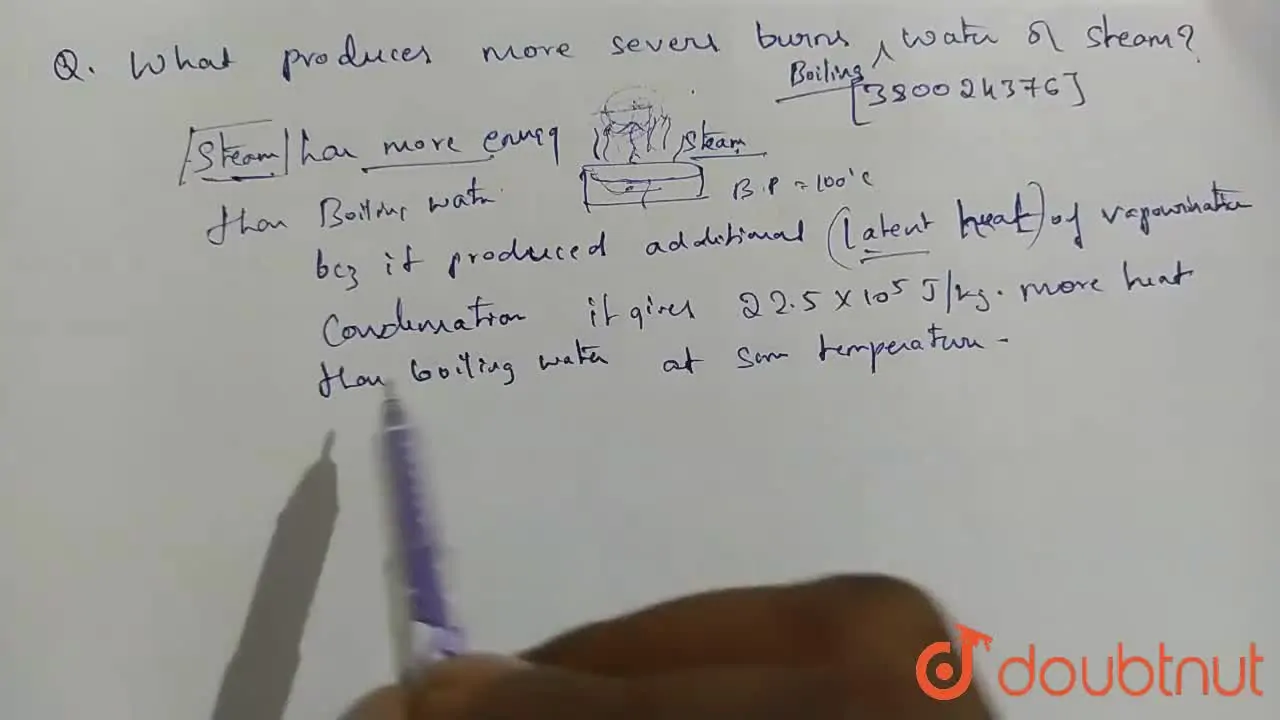 Q. What produces more severs burns, water or steam?
Boiling
[380024376]
Steam has more energ
Steam
than Boiling water
B.P = 100°C
bcz it produced additional (latent heat) of vapourization
Condensation it gives 22.5 × 10⁵ J/kg. more heat
than boiling water at sam temperature.
doubtnut